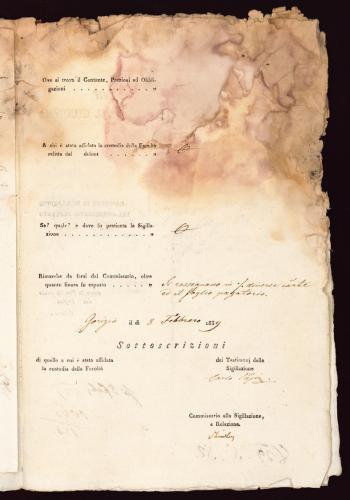 Ove si trova il Contante, Preziosi ed Obbli-
gazioni . . . . . . . . . . . . „
A chi è stata affidata la custodia della Facoltà
relitta dal defunto . . . . . . . „
Se? quale? e dove fu praticata la Sigilla-
zione . . . . . . . . . . . . . „
Rimarche da farsi dal Commissario, oltre
quanto finora fu esposto . . . . . „
Si rassegnano in diverse carte
ed il foglio
Gorizia il dì 8 Febbraro 1839
Sottoscrizioni
di quello a cui è stata affidata
la custodia della Facoltà
dei Testimonj della
Sigillazione
Carlo
Commissario alla Sigillazione,
e Relazione.